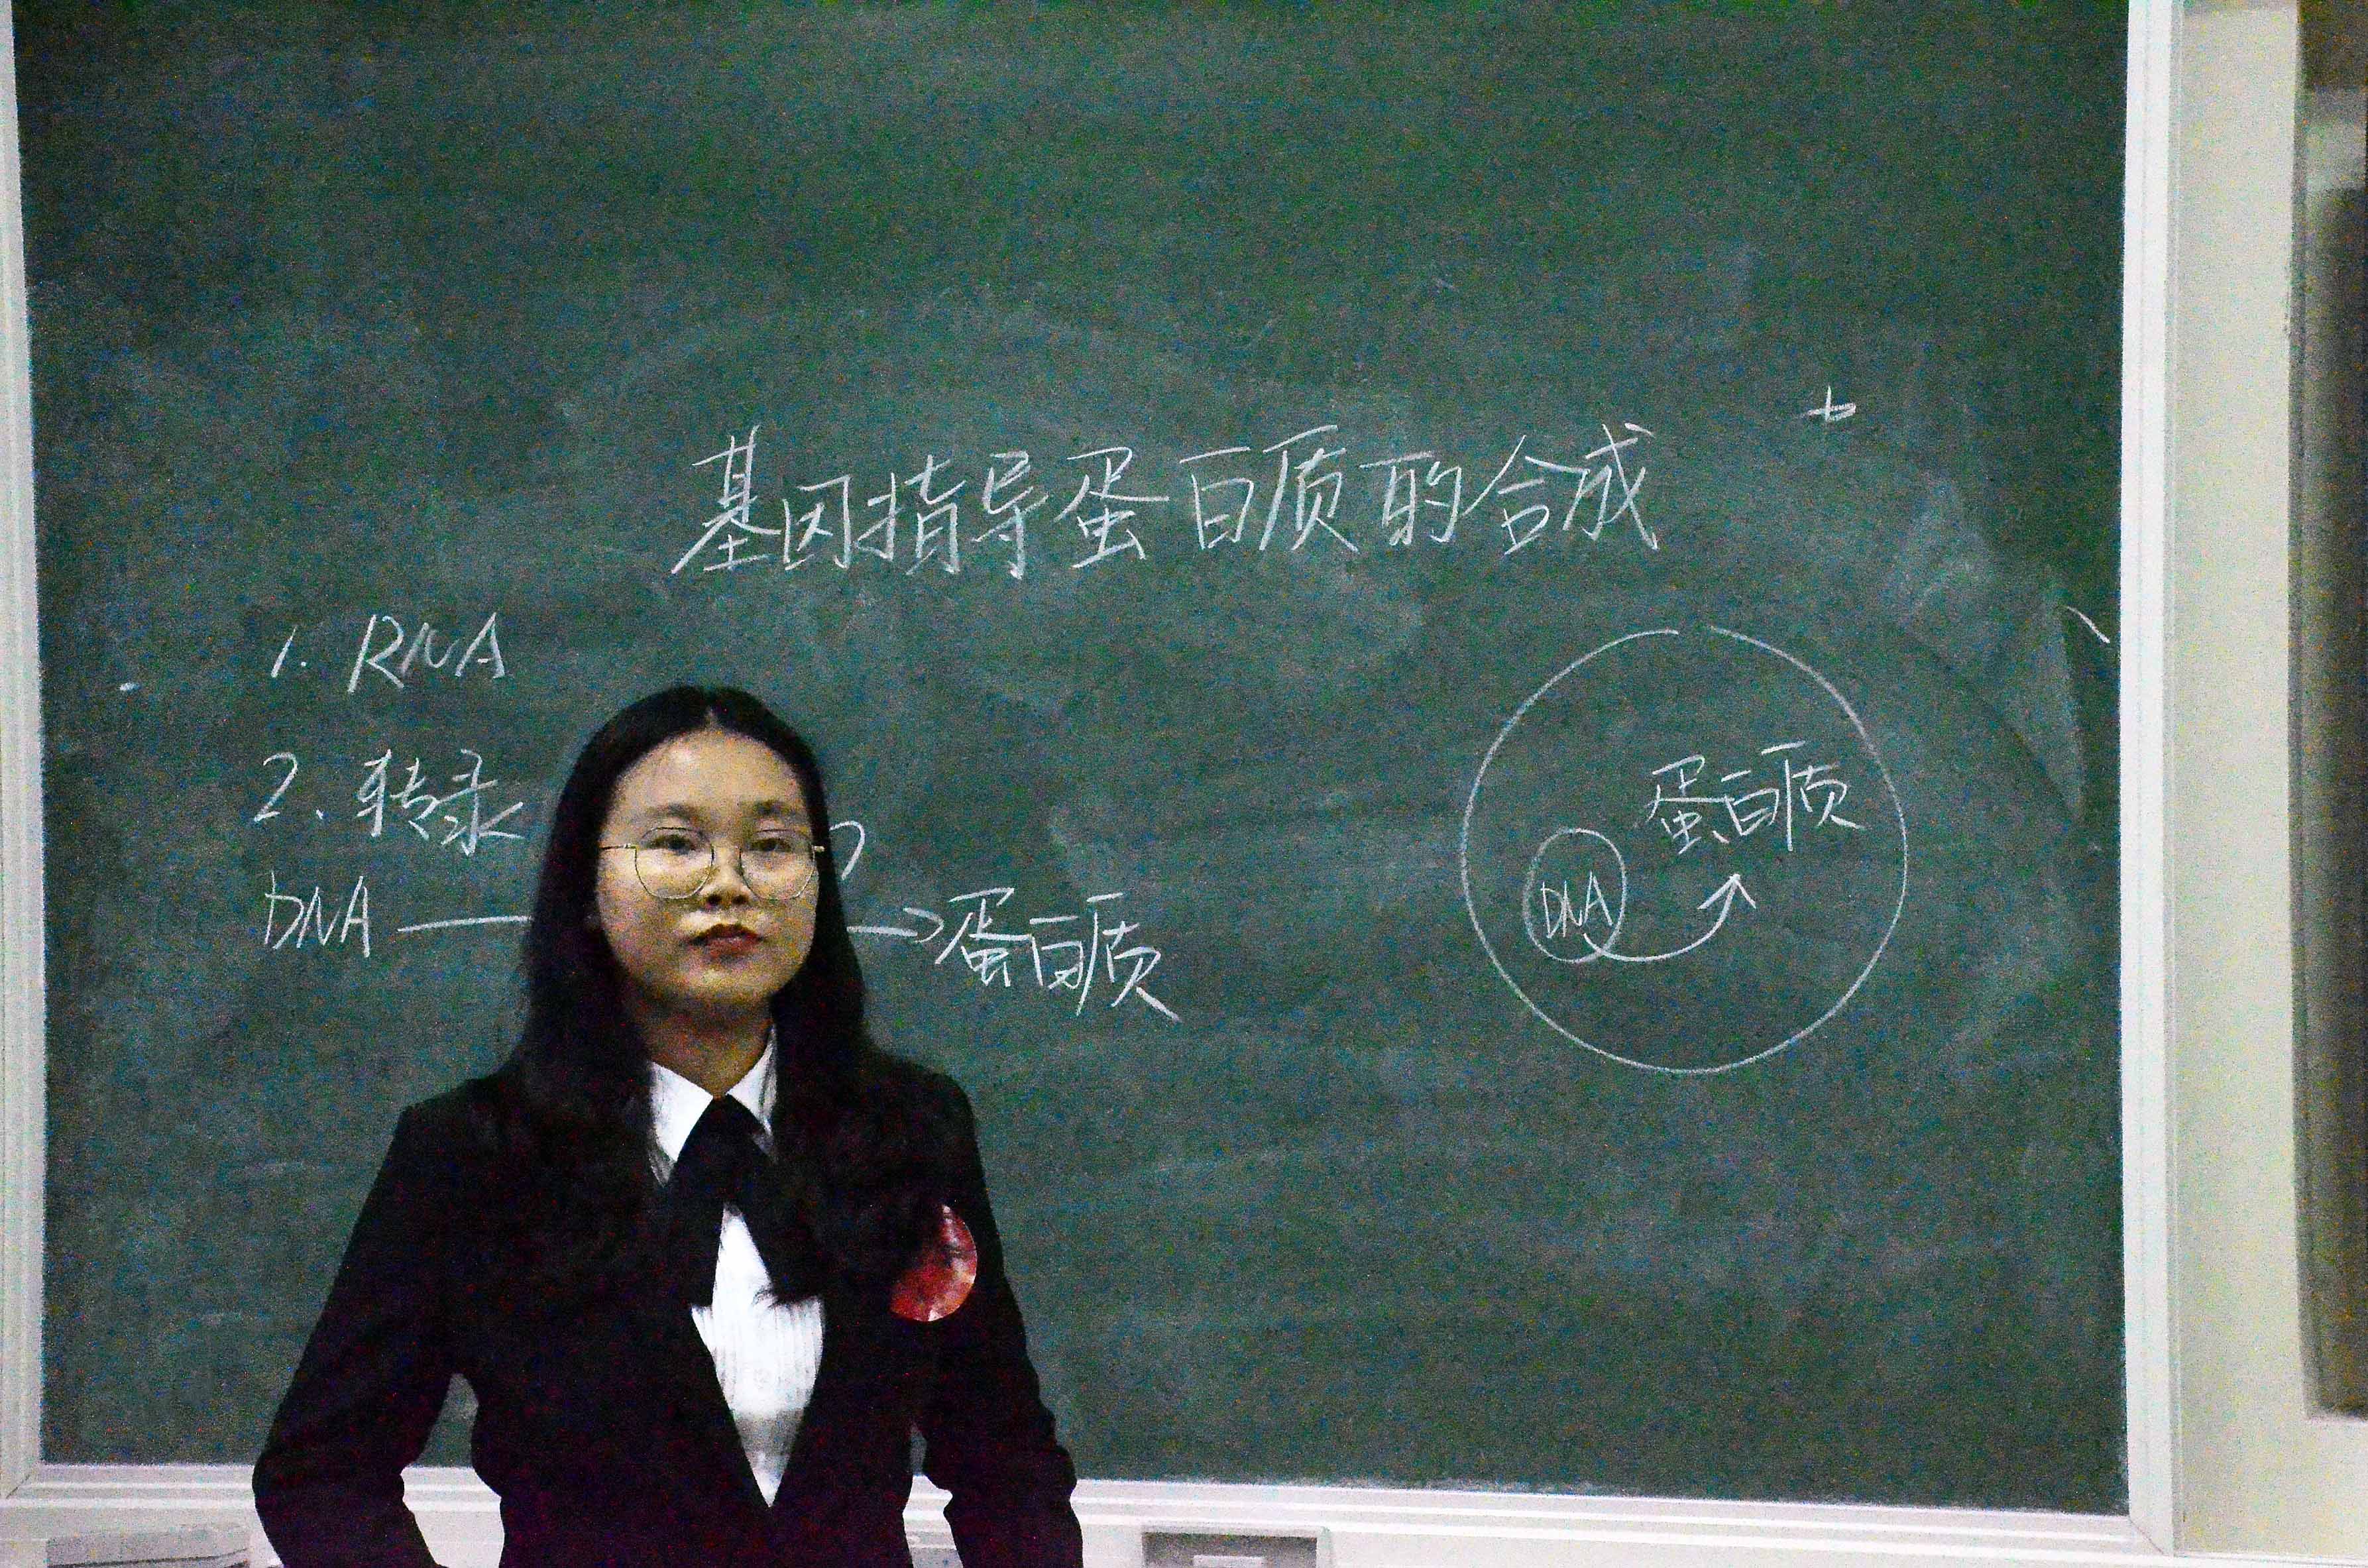 基因指导蛋白质的合成
1. RNA
2. 转录
DNA → 蛋白质
蛋白质
DNA